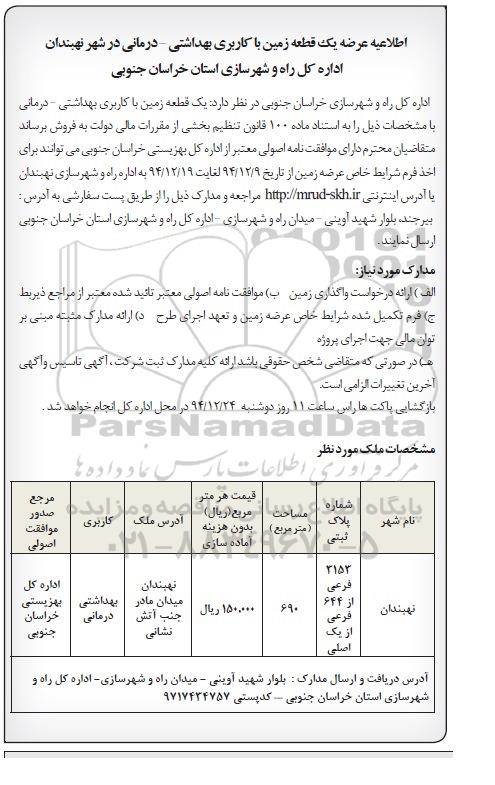 اطلاعیه عرضه یک قطعه زمین با کاربری بهداشتی – درمانی در شهر نهبندان
اداره کل راه و شهرسازی استان خراسان جنوبی
اداره کل راه و شهرسازی خراسان جنوبی در نظر دارد: یک قطعه زمین با کاربری بهداشتی – درمانی
با مشخصات ذیل را به استناد ماده ۱۰۰ قانون تنظیم بخشی از مقررات مالی دولت به فروش برساند
متقاضیان محترم دارای موافقت نامه اصولی معتبر از اداره کل بهزیستی خراسان جنوبی می توانند برای
اخذ فرم شرایط خاص عرضه زمین از تاریخ ۹۴/۱۲/۹ لغایت ۹۴/۱۲/۱۹ به اداره راه و شهرسازی نهبندان
یا آدرس اینترنتی http://mrud-skh.ir مراجعه و مدارک ذیل را از طریق پست سفارشی به آدرس :
بیرجند، بلوار شهید آوینی – میدان راه و شهرسازی – اداره کل راه و شهرسازی استان خراسان جنوبی
ارسال نمایند.
مدارک مورد نیاز:
الف) ارائه درخواست واگذاری زمین ب) موافقت نامه اصولی معتبر تائید شده معتبر از مراجع ذیربط
ج) فرم تکمیل شده شرایط خاص عرضه زمین و تعهد اجرای طرح د) ارائه مدارک مثبته مبنی بر
توان مالی جهت اجرای پروژه
هـ) در صورتی که متقاضی شخص حقوقی باشد ارائه کلیه مدارک ثبت شرکت ، آگهی تاسیس و آگهی
آخرین تغییرات الزامی است.
بازگشایی پاکت ها راس ساعت ۱۱ روز دوشنبه ۹۴/۱۲/۲۴ در محل اداره کل انجام خواهد شد .
ParsNamadData
مرکز فرآوری اطلاعات پارس نماد داده ها
مشخصات ملک مورد نظر
نام شهر
شماره پلاک ثبتی
مساحت (متر مربع)
قیمت هر متر مربع (ریال) بدون هزینه آماده سازی
آدرس ملک
کاربری
مرجع صدور موافقت اصولی
۰۲۱-۸۸۳۴۹۶۷۰-۵
نهبندان
۳۱۵۳ فرعی از ۶۴۴ فرعی از یک اصلی
۶۹۰
۱۵۰,۰۰۰ ریال
نهبندان میدان مادر جنب آتش نشانی
بهداشتی درمانی
اداره کل بهزیستی خراسان جنوبی
آدرس دریافت و ارسال مدارک : بلوار شهید آوینی – میدان راه و شهرسازی- اداره کل راه و
شهرسازی استان خراسان جنوبی – کدپستی ۹۷۱۷۴۳۴۷۵۷